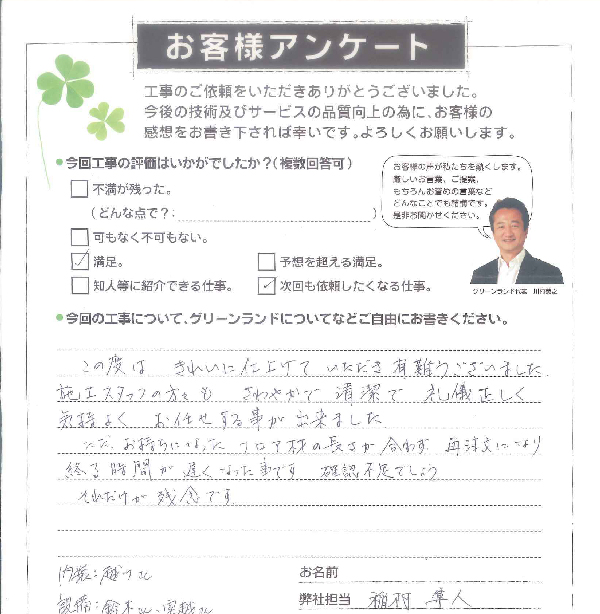 お客様アンケート
工事のご依頼をいただきありがとうございました。
今後の技術及びサービスの品質向上の為に、お客様の
感想をお書き下されば幸いです。よろしくお願いします。
●今回工事の評価はいかがでしたか?(複数回答可)
不満が残った。
(どんな点で?: )
可もなく不可もない。
満足。
予想を超える満足。
知人等に紹介できる仕事。
次回も依頼したくなる仕事。
お客様の声が私たちを熱くします。
厳しいお言葉、ご提案、
もちろんお褒めの言葉など
どんなことでも結構です。
是非お聞かせください。
グリーンランド代表
●今回の工事について、グリーンランドについてなどご自由にお書きください。
この度は きれいに仕上げて いただき 有難うございました
施工スタッフの方々も さわやかで 清潔で 礼儀正しく
気持よく お任せする事が出来ました
ただ、お持ちになった フロア材の長さが合わず 再注文により
終る時間が遅くなった事です 確認不足でしょう
それだけが残念です
内装:
設備:鈴木
お名前
弊社担当 稲村 隼人